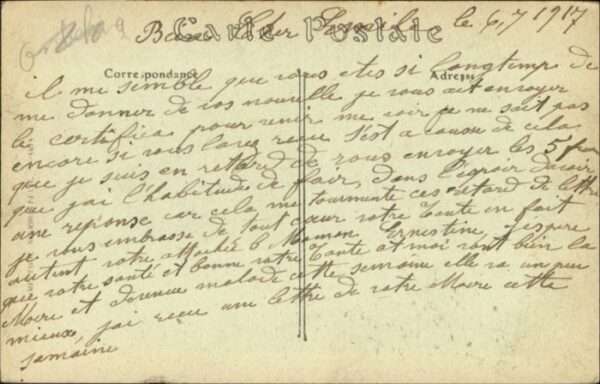 Carte Postale
le 6, 7 1917
Correspondance
Adresse
il me semble que vous etes si longtemp de
me donner de vos nouvelle je vous ait envoyer
le certifica pour venir me voir je ne sait pas
encore si vous lavez recue s'est a cause de cela
que je suis en retard de vous envoyer les 5 fran
que j'ai l'habitude de dans l'espoir davoir
une reponse car cela me tourmente ces retard de lettre
je vous embrasse de tout cœur votre Tante en fait
autant votre Maman Ernestine, j'espere
que votre santé et bonne votre Tante et moi vont bien la
Mere et devenue malade cette semaine elle va un peu
mieux, j'ai recue une lettre de votre Mere cette
semaine